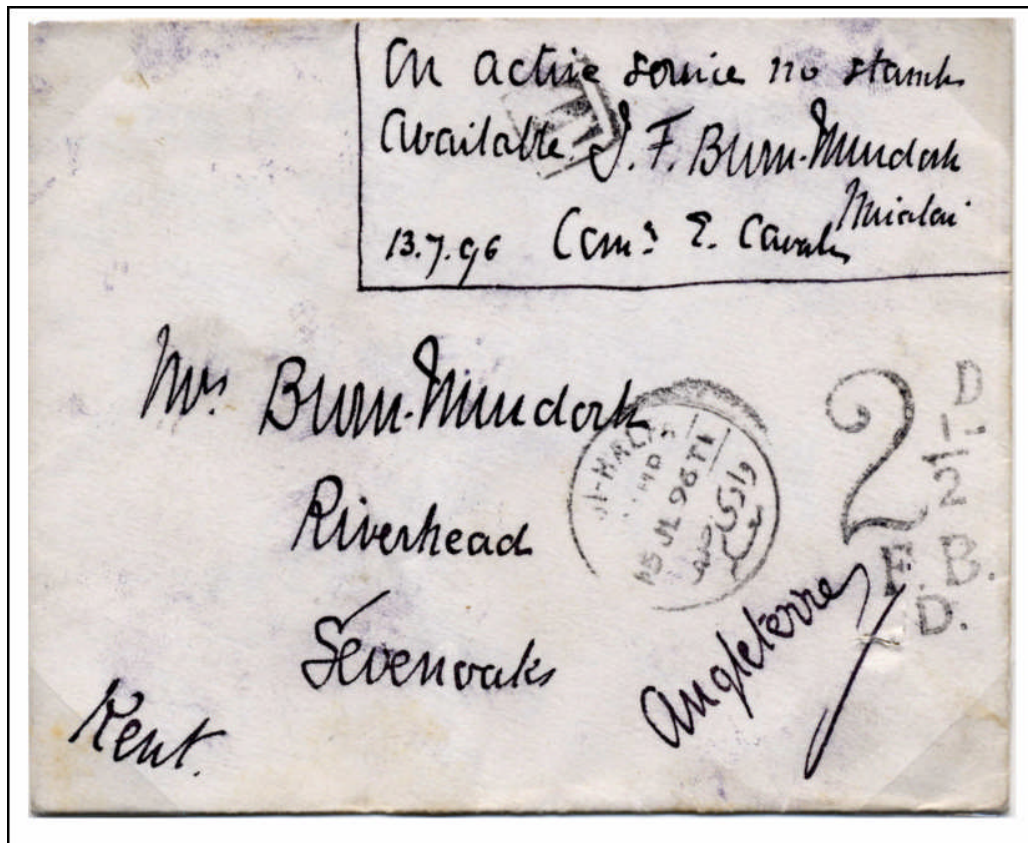 On active service no stamps
available. J. F. Burn-Murdoch
13.7.96 Com.g E. Cavalry
Mrs. Burn-Murdoch
Riverhead
Sevenoaks
Kent.
Angleterre
I-HALFA
15 JL 96 T1
وادي حلفا
2 1/2 D
F. B.
D.